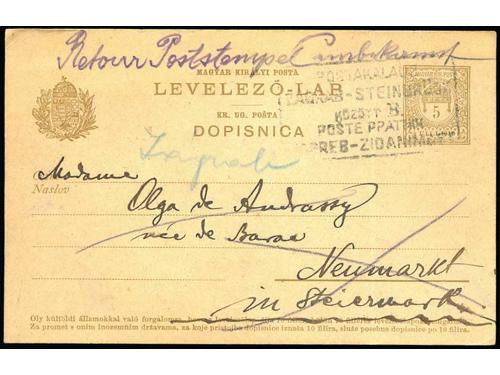 Retour Poststempel Unbekannt
MAGYAR KIRÁLYI POSTA
LEVELEZŐ-LAP
KR. UG. POŠTA
DOPISNICA
MAGYAR KIR. POSTA
5
POSTAKALAUZ
ZÁGRÁB-STEINBRÜCK
KÖZÖTT B.
POSTE PRATNIK
ZAGREB-ZIDANIMOST
Zagreb
Madame
Naslov
Olga de Andrassy
née de Barac
Neumarkt
in Steiermark.
Oly külföldi államokkal való forgalomra,
Za promet s onim inozemnim državama, za koje pristojba dopisnice iznaša 10 filira, služe posebne dopisnice po 10 filira.